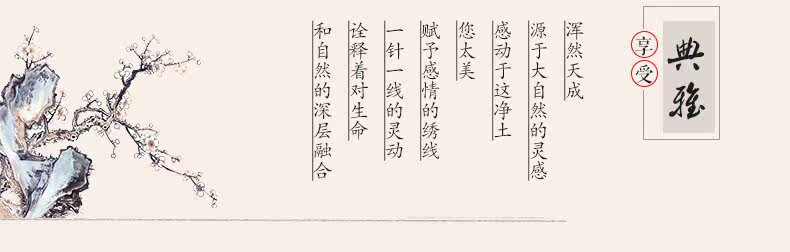 典雅
享受
浑然天成
源于大自然的灵感
感动于这净土
您太美
赋予感情的绣线
一针一线的灵动
诠释着对生命
和自然的深层融合